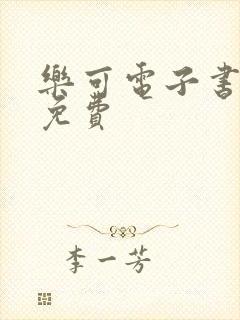 樂可電子書
免費
李一芳